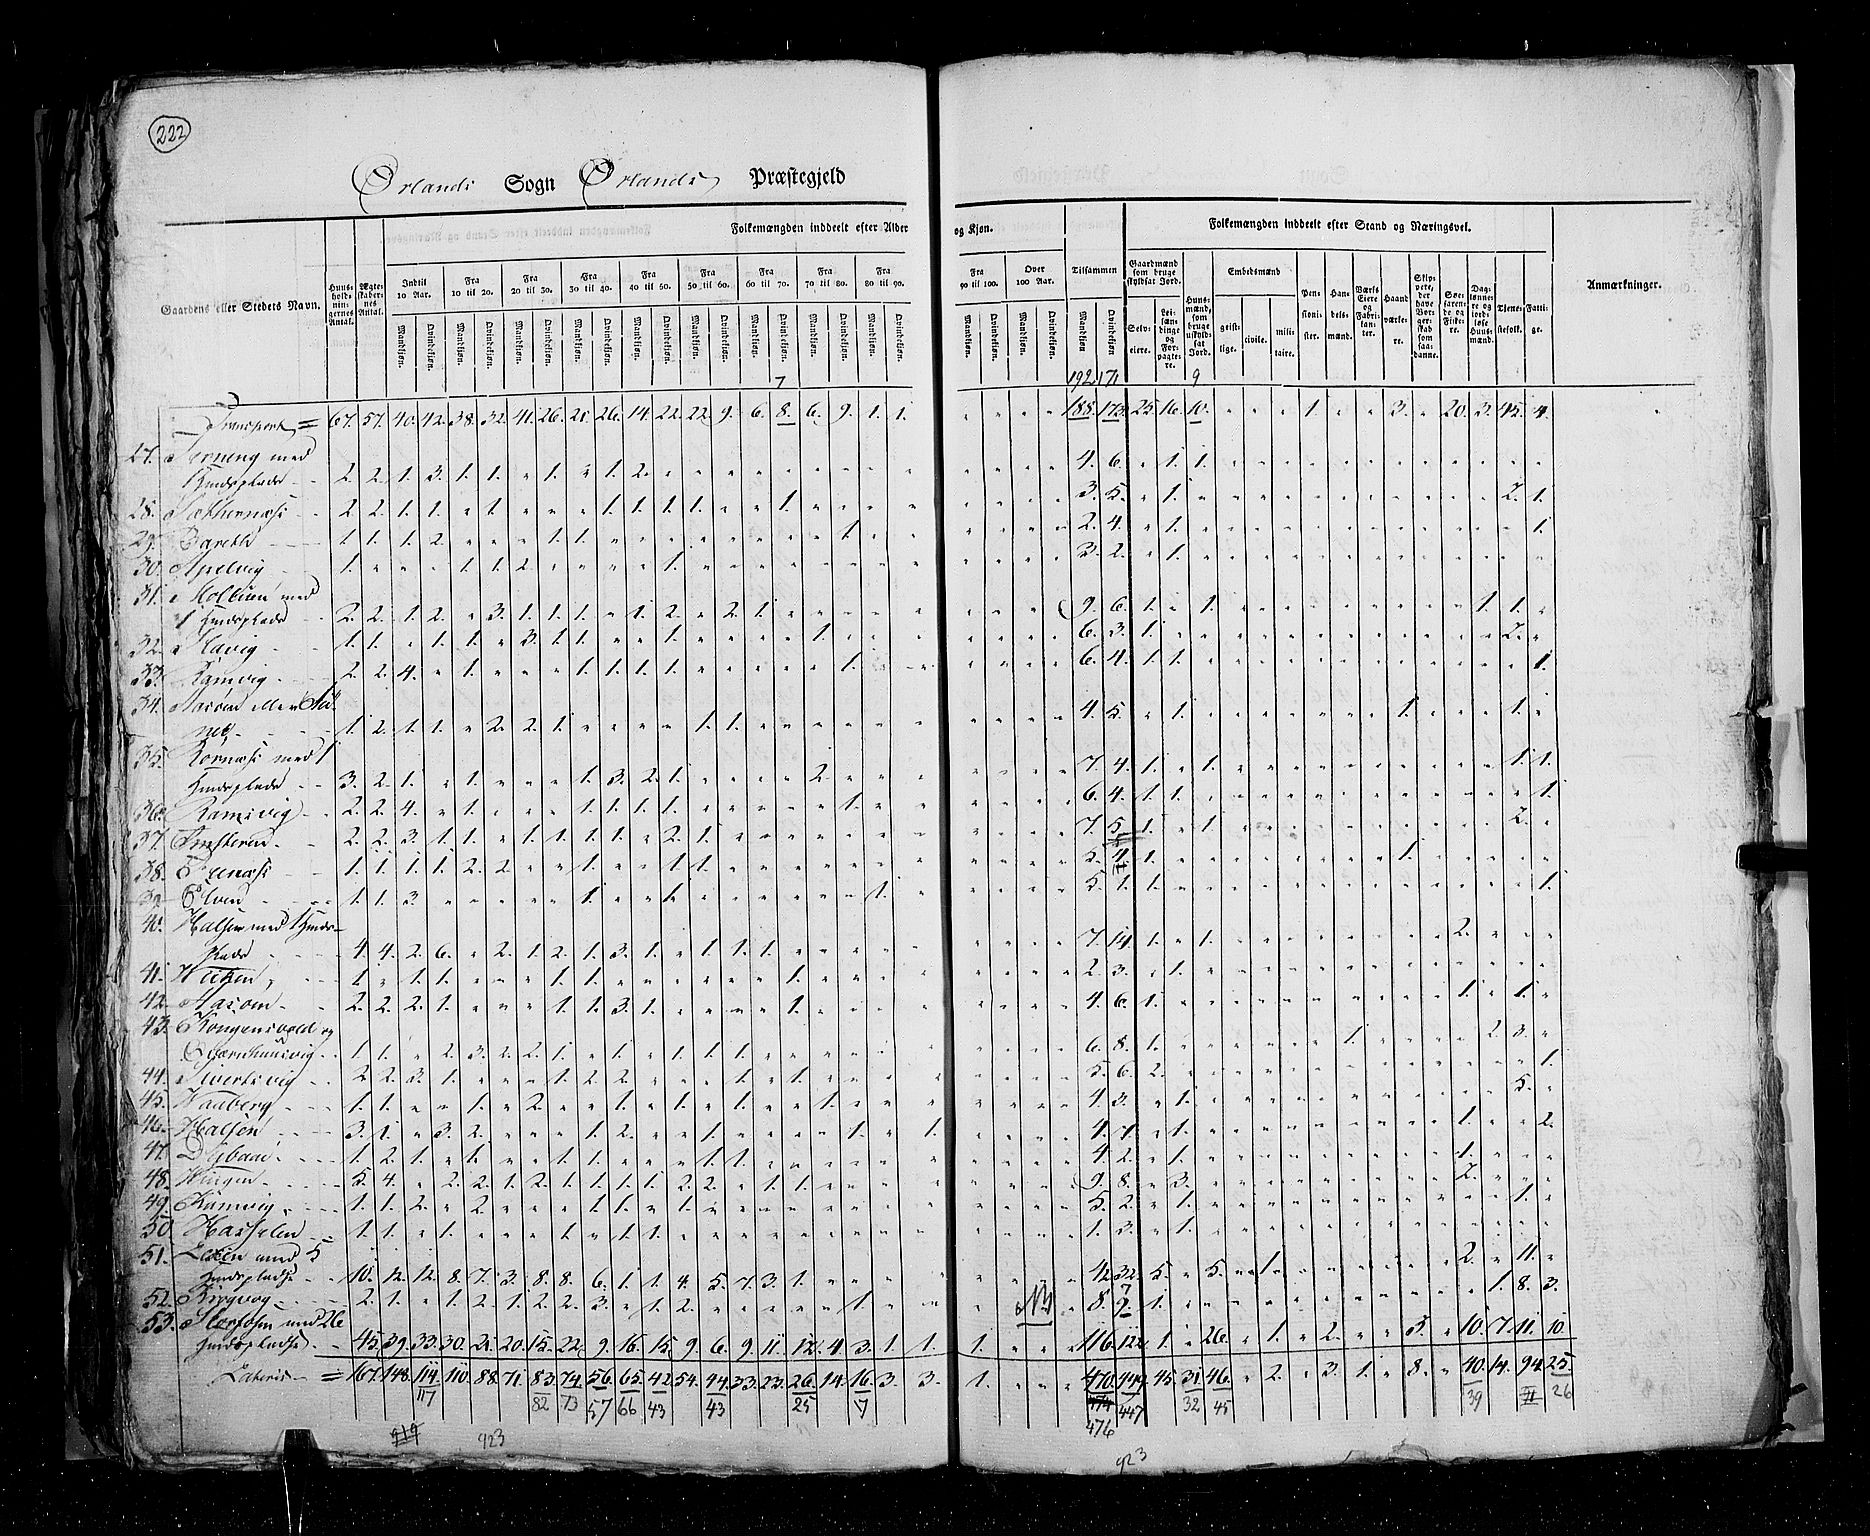 222
Ørlands Sogn Ørlands Præstegjeld
Folkemængden inddeelt efter Alder og Kjøn.
Folkemængden inddeelt efter Stand og Næringsvei.
Gaardens eller Steders Navn.
Huusholdningernes Antal.
Ægteskabernes Antal.
Indtil 10 Aar.
Fra 10 til 20.
Fra 20 til 30.
Fra 30 til 40.
Fra 40 til 50.
Fra 50 til 60.
Fra 60 til 70.
Fra 70 til 80.
Fra 80 til 90.
Fra 90 til 100.
Over 100 Aar.
Tilsammen
Mandkjøn. Qvindekjøn.
Gaardmænd som bruge skyldsat Jord.
Selveiere.
Leilændinge og Forpagtere.
Huusmænd, som bruge uskyldsat Jord.
Embedsmænd
geistlige. civile. militaire.
Pensionister.
Handelsmænd.
Værks Eiere og Fabrikanter.
Haandværkere.
Skippere, der have Borgerskab som saadanne.
Søefarende og Fiskere.
Daglønnere og jordløse Huusmænd.
Tjenestefolk.
Fattige.
Anmærkninger.
7 192 171 9
Transport = 67. 57. 40. 42. 38. 32. 41. 26. 21. 26. 14. 22. 22. 9. 6. 8. 6. 9. 1. 1. 188. 173. 25. 16. 10. 1. 3. 20. 3. 45. 4.
27. med
Huusplads 2. 2. 1. 3. 1. 1. 1. 1. 2. 4. 6. 1. 1.
28. 2. 2. 1. 1. 1. 1. 1. 1. 1. 1. 3. 5. 1. 2. 1.
29. 1. 1. 1. 2. 1. 1. 1. 2. 4. 1. 1.
30. Apelvig 1. 1. 1. 2. 1. 3. 2. 1.
31. med
1 Huusplads 2. 2. 1. 2. 3. 1. 1. 1. 1. 2. 2. 1. 9. 6. 1. 1. 1. 1.
32. 1. 1. 1. 1. 3. 1. 1. 1. 1. 6. 3. 1. 2.
33. Ramvig 2. 2. 4. 1. 1. 1. 1. 1. 1. 6. 4. 1. 1. 1.
34. eller
1. 2. 1. 1. 2. 2. 1. 1. 1. 4. 5. 1. 1. 1.
35. med 1
Huusplads 3. 2. 1. 1. 1. 3. 2. 1. 2. 7. 4. 1. 1. 1. 1.
36. Ramsvig 2. 2. 4. 1. 1. 1. 1. 1. 1. 6. 4. 1. 1. 1.
37. 2. 2. 3. 1. 1. 1. 1. 1. 1. 2. 1. 7. 5. 1. 1. 2.
38. 1. 1. 1. 1. 2. 2. 1. 1. 1. 5. 4. 1. 1.
39. Elven 1. 1. 3. 1. 1. 1. 5. 1. 1. 1.
40. Halsen med 1 Huus-
plads 4. 4. 2. 6. 2. 1. 2. 1. 3. 1. 1. 1. 1. 7. 14. 1. 1. 2.
41. 1. 1. 1. 1. 1. 1. 2. 3. 1.
42. 2. 2. 2. 1. 1. 1. 3. 1. 1. 4. 6. 1. 1. 1.
43. Kongensvold og
1. 1. 2. 3. 2. 2. 1. 1. 1. 1. 1. 6. 8. 1. 1. 2. 3.
44. Sivertsvig 2. 2. 3. 1. 1. 2. 2. 1. 1. 5. 6. 2. 1.
45. 1. 1. 1. 2. 1. 1. 1. 4. 3. 1. 5.
46. Halsen 3. 1. 3. 2. 1. 2. 1. 1. 1. 4. 7. 1. 1. 2.
47. 1. 2. 1. 1. 1. 1. 1. 1. 4. 2. 1. 1.
48. 5. 4. 2. 2. 1. 2. 1. 1. 1. 1. 2. 2. 1. 1. 9. 8. 3. 2.
49. Ramvig 1. 1. 2. 2. 1. 1. 1. 5. 2. 1. 1.
50. Hasselen 1. 1. 1. 1. 1. 1. 1. 3. 1.
51. med 5
Huuspladse 10. 12. 12. 8. 7. 3. 8. 8. 6. 1. 1. 4. 5. 7. 3. 1. 42. 32. 5. 5. 1. 2. 11.
52. 2. 1. 1. 2. 1. 2. 2. 3. 1. 2. 1. 8. 9. 7 1. 1. 8. 3.
53. med 26
Huuspladse 45. 39. 33. 30. 21. 20. 15. 22. 9. 16. 15. 9. 6. 9. 11. 12. 4. 3. 1. 1. 1. 116. 122. 1. 26. 1. 2. 5. 10. 7. 11. 10.
Lateris = 167. 148. 114. 110. 88. 71. 83. 74. 56. 65. 42. 54. 44. 33. 23. 26. 14. 16. 3. 3. 1. 470. 444. 45. 31. 46. 2. 3. 1. 8. 40. 14. 94. 25.
117 82 73 57 66 43 43 25 17 474 447 32 45 39 71 26
476
919 923
923